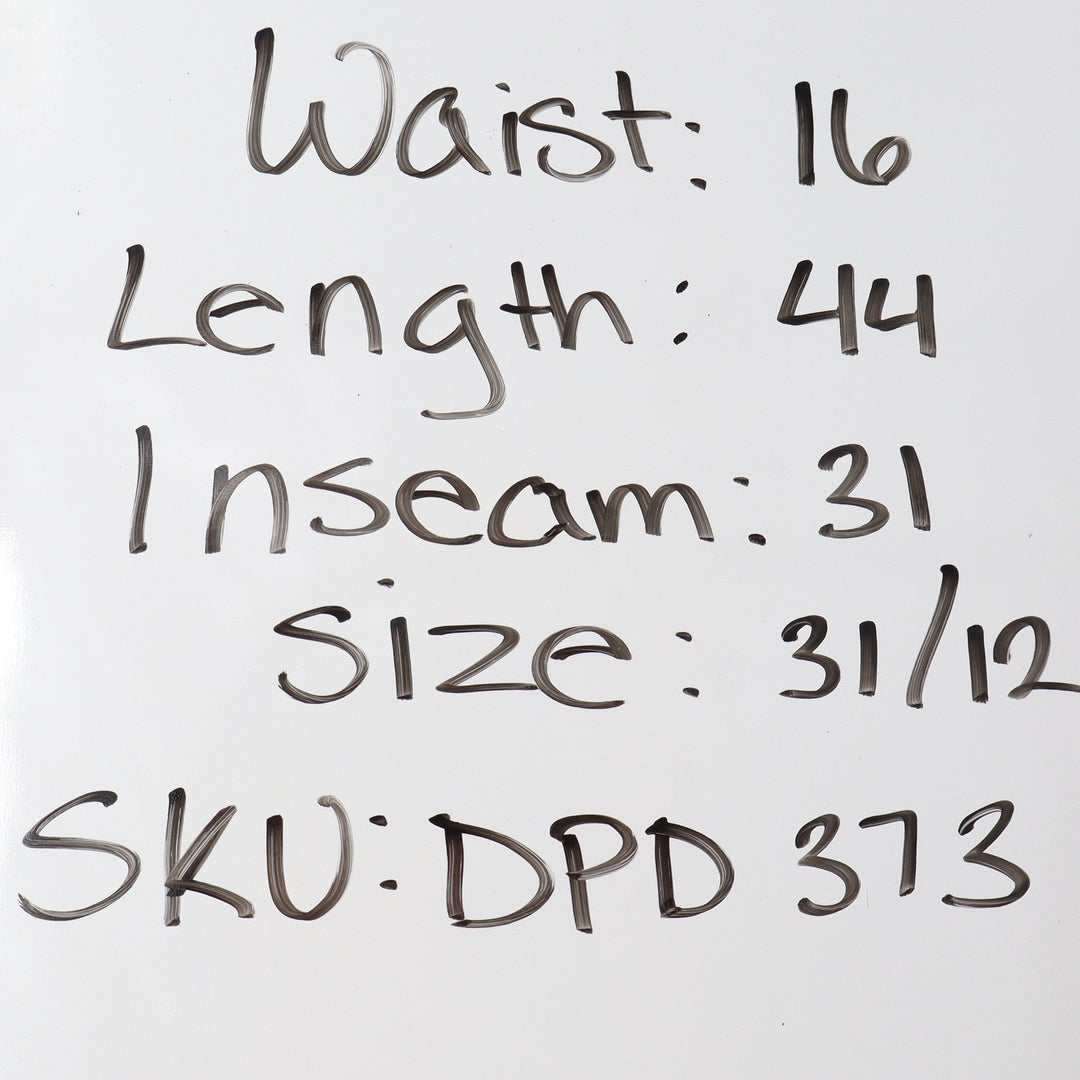 Waist: 16
Length: 44
Inseam: 31
Size: 31/12
SKU: DPD 373